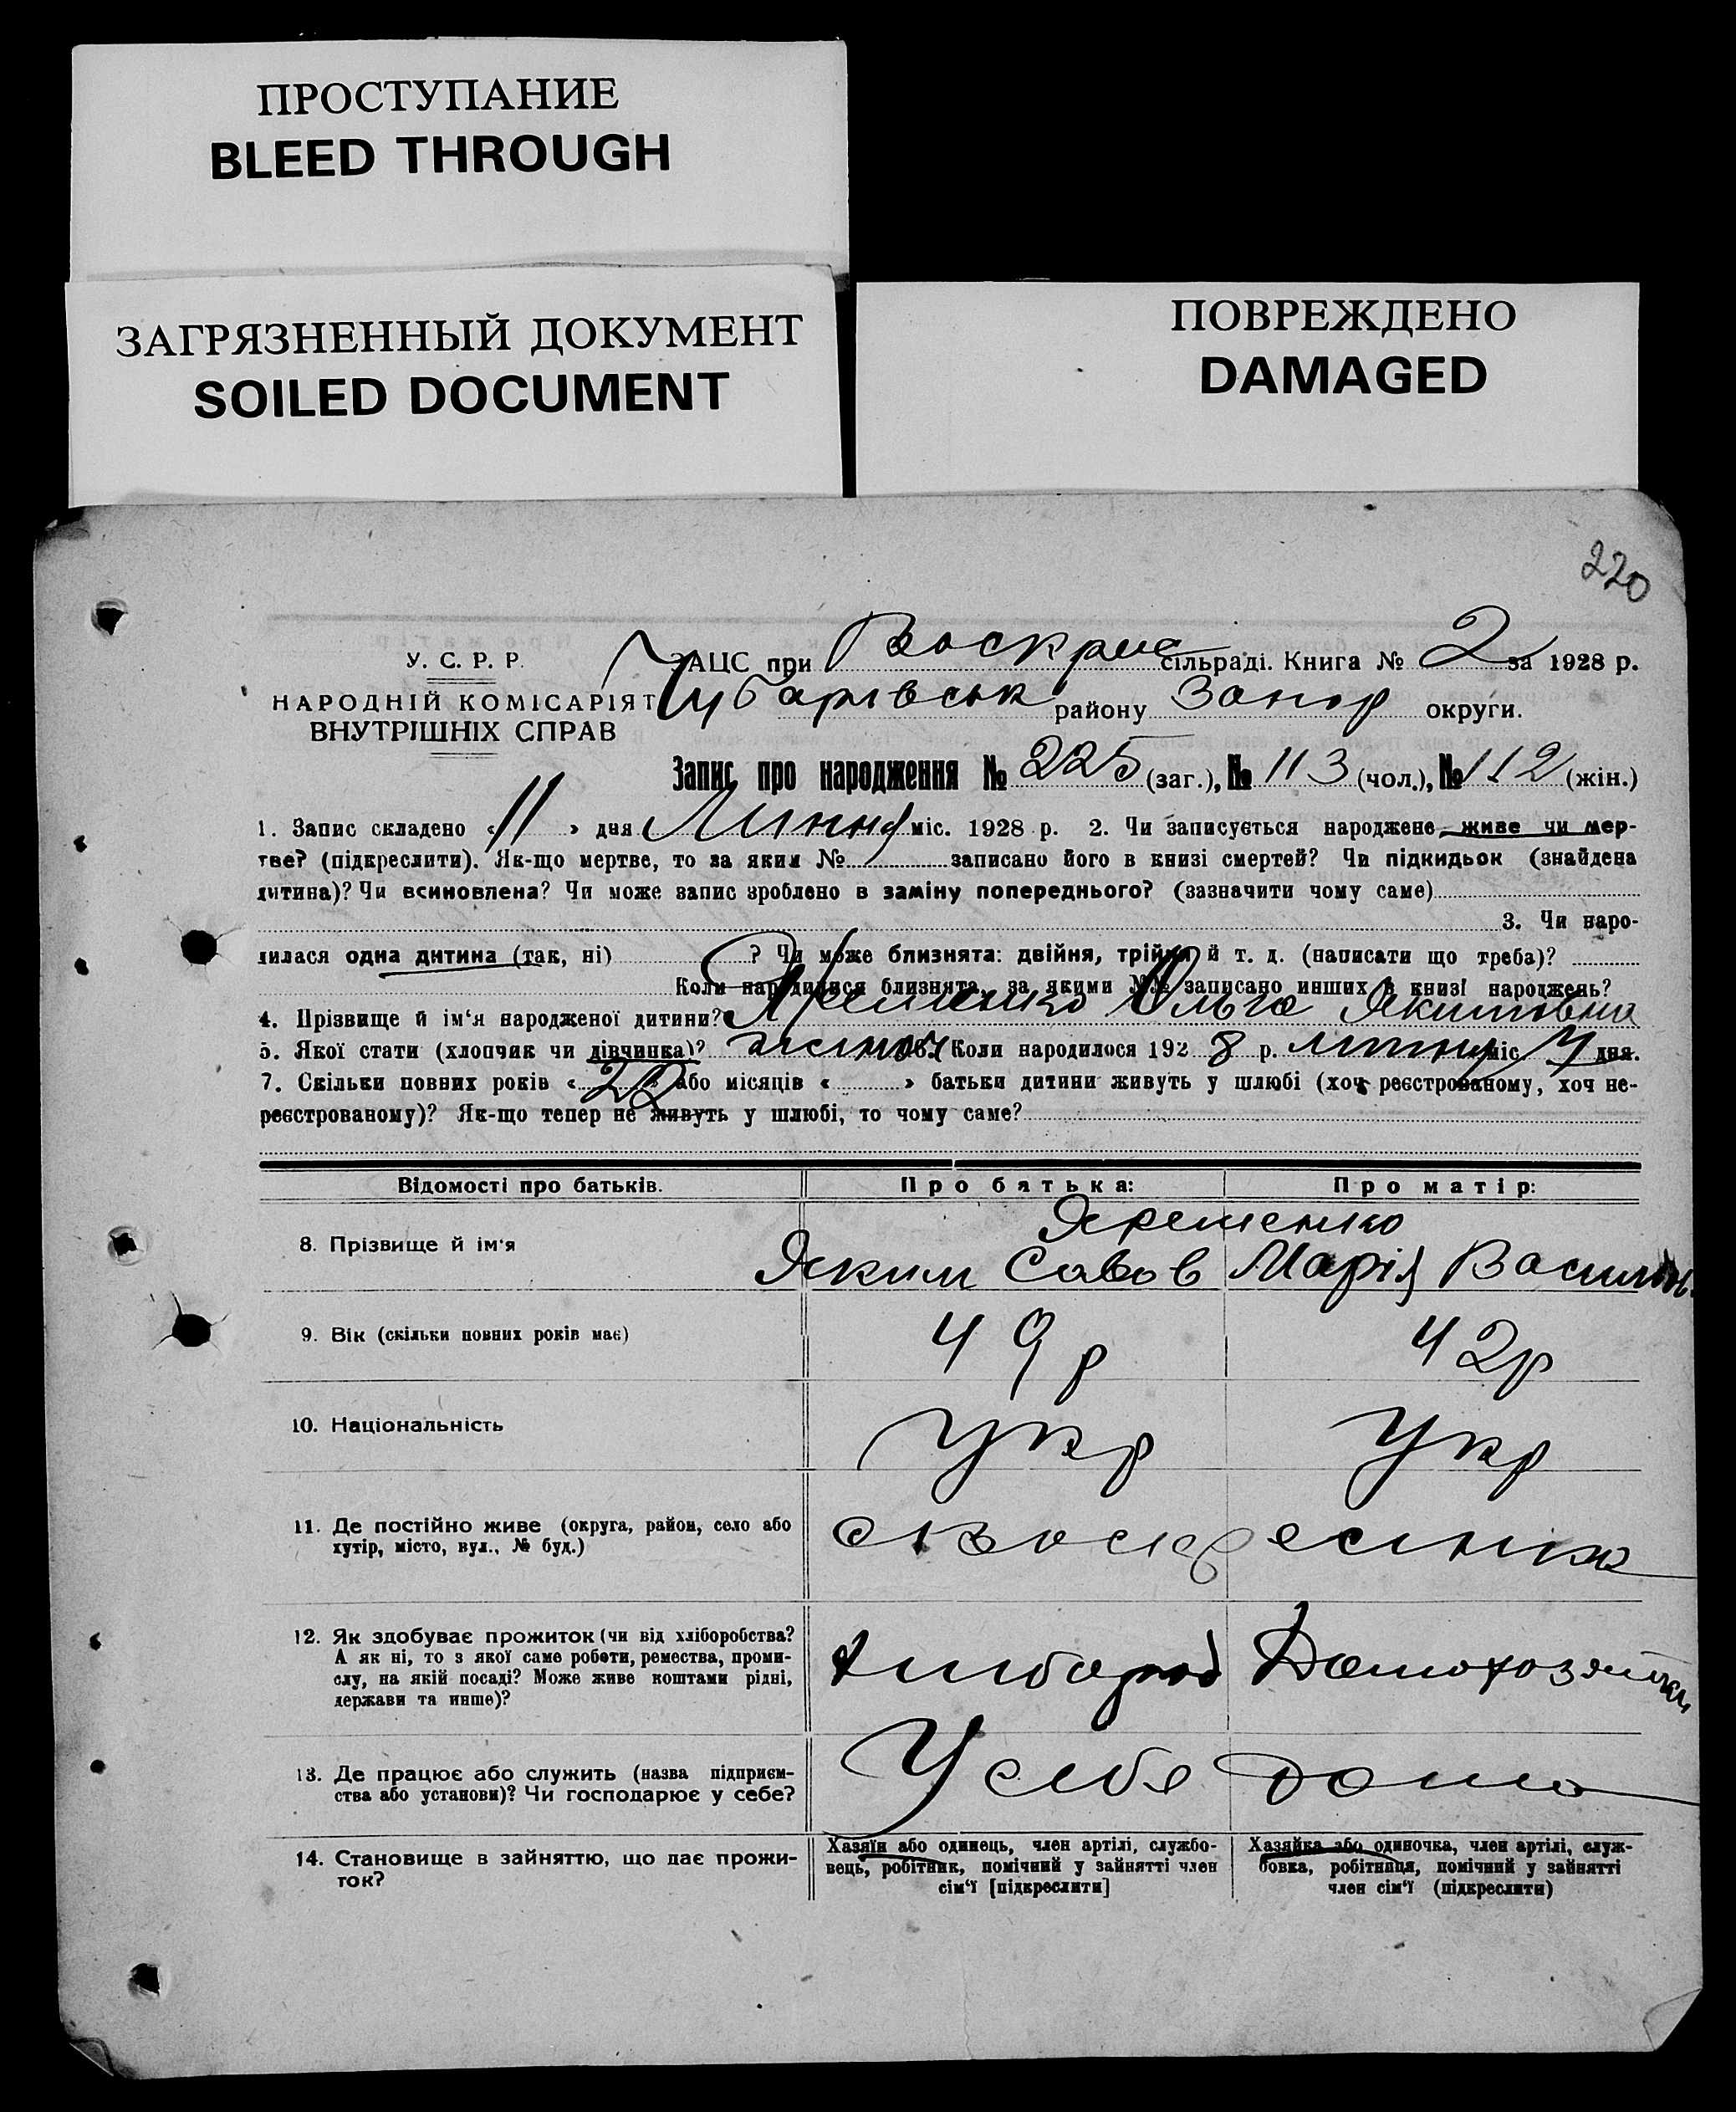 ПРОСТУПАНИЕ
BLEED THROUGH
ЗАГРЯЗНЕННЫЙ ДОКУМЕНТ
SOILED DOCUMENT
ПОВРЕЖДЕНО
DAMAGED
220
У. С. Р. Р.
НАРОДНІЙ КОМІСАРІЯТ
ВНУТРІШНІХ СПРАВ
ЗАЦС при Воскрес сільраді. Книга № 2 за 1928 р.
Чубарівськ району Запор округи.
Запис про народження № 225 (заг.), № 113 (чол.), № 112 (жін.)
1. Запис складено « 11 » дня Липня міс. 1928 р. 2. Чи записується народжене живе чи мер-
тве? (підкреслити). Як-що мертве, то за яким № записано його в книзі смертей? Чи підкидьок (знайдена
дитина)? Чи всиновлена? Чи може запис зроблено в заміну попереднього? (зазначити чому саме)
3. Чи наро-
дилася одна дитина (так, ні) ? Чи може близнята: двійня, трійня й т. д. (написати що треба)?
Коли народилися близнята, за якими №№ записано инших в книзі народжень?
4. Прізвище й ім'я народженої дитини? Яременко Ольга Якимовна
5. Якої стати (хлопчик чи дівчинка)? 6. Коли народилося 192 8 р. липня міс. 7 дня.
7. Скільки повних років « 20 » або місяців « » батьки дитини живуть у шлюбі (хоч реєстрованому, хоч не-
реєстрованому)? Як-що тепер не живуть у шлюбі, то чому саме?
Відомості про батьків. Про батька: Про матір:
Яременко
8. Прізвище й ім'я Яким Савов Марія Васильов.
9. Вік (скільки повних років має) 49 р 42 р
10. Національність Укр Укр
11. Де постійно живе (округа, район, село або
хутір, місто, вул., № буд.)
с Воскресенка
12. Як здобуває прожиток (чи від хліборобства?
А як ні, то з якої саме роботи, ремества, проми-
слу, на якій посаді? Може живе коштами рідні,
держави та инше)?
Хлібороб Домохозяйка
13. Де працює або служить (назва підприєм-
ства або установи)? Чи господарює у себе?
У себе дома
14. Становище в зайняттю, що дає прожи-
ток?
Хазяїн або одинець, член артілі, службо-
вець, робітник, помічний у зайнятті член
сім'ї [підкреслити]
Хазяйка або одиночка, член артілі, служ-
бовка, робітниця, помічний у зайнятті
член сім'ї (підкреслити)